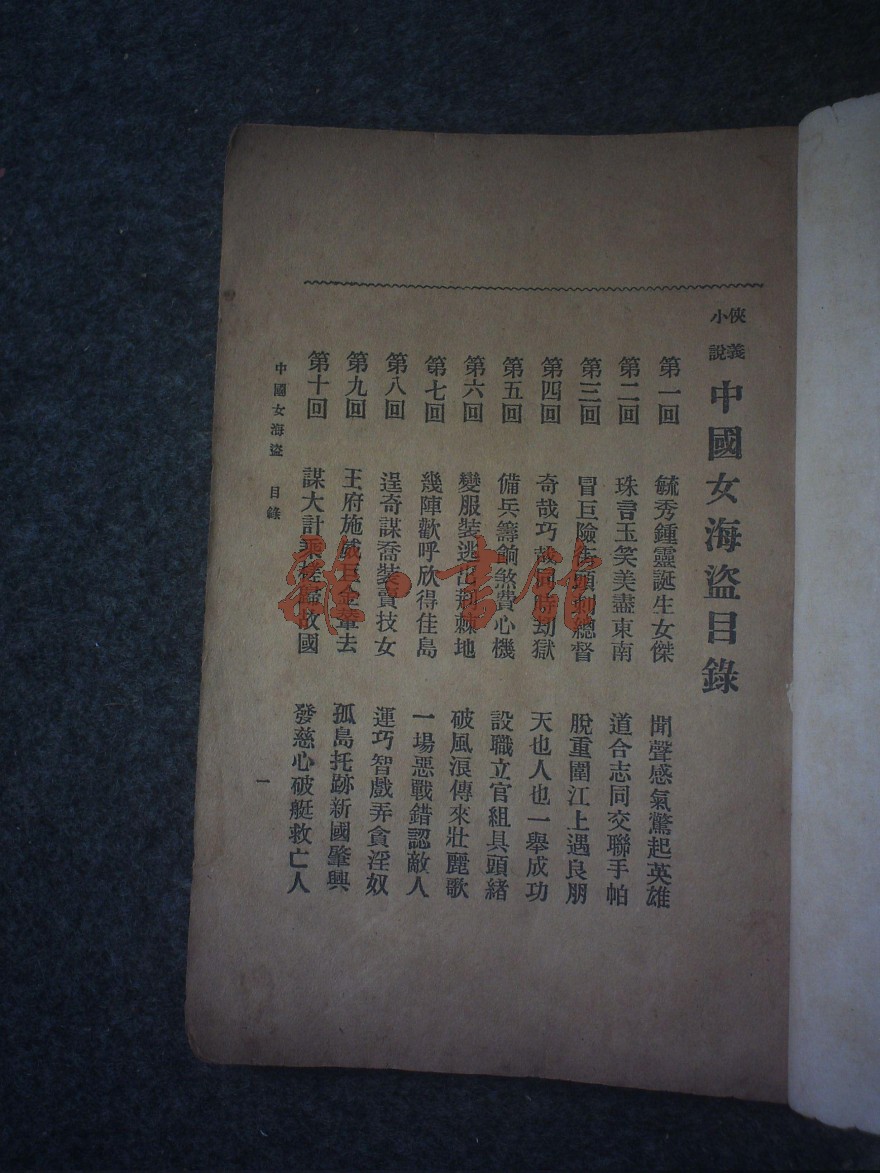 俠義小說 中國女海盜目錄
第一回 毓秀鍾靈誕生女傑 聞聲感氣驚起英雄
第二回 珠言玉笑美盡東南 道合志同交聯手帕
第三回 冒巨險街頭刺總督 脫重圍江上遇良朋
第四回 奇哉巧哉同時劫獄 天也人也一舉成功
第五回 備兵籌餉煞費心機 設職立官組具頭緒
第六回 變服裝逃出荆棘地 破風浪傳來壯麗歌
第七回 幾陣歡呼欣得佳島 一場惡戰錯認敵人
第八回 逞奇謀喬裝賣技女 運巧智戲弄貪淫奴
第九回 王府施威巨金輦去 孤島托跡新國肇興
第十回 謀大計乘槎 故國 發慈心破艇救亡人
中國女海盜 目錄
一